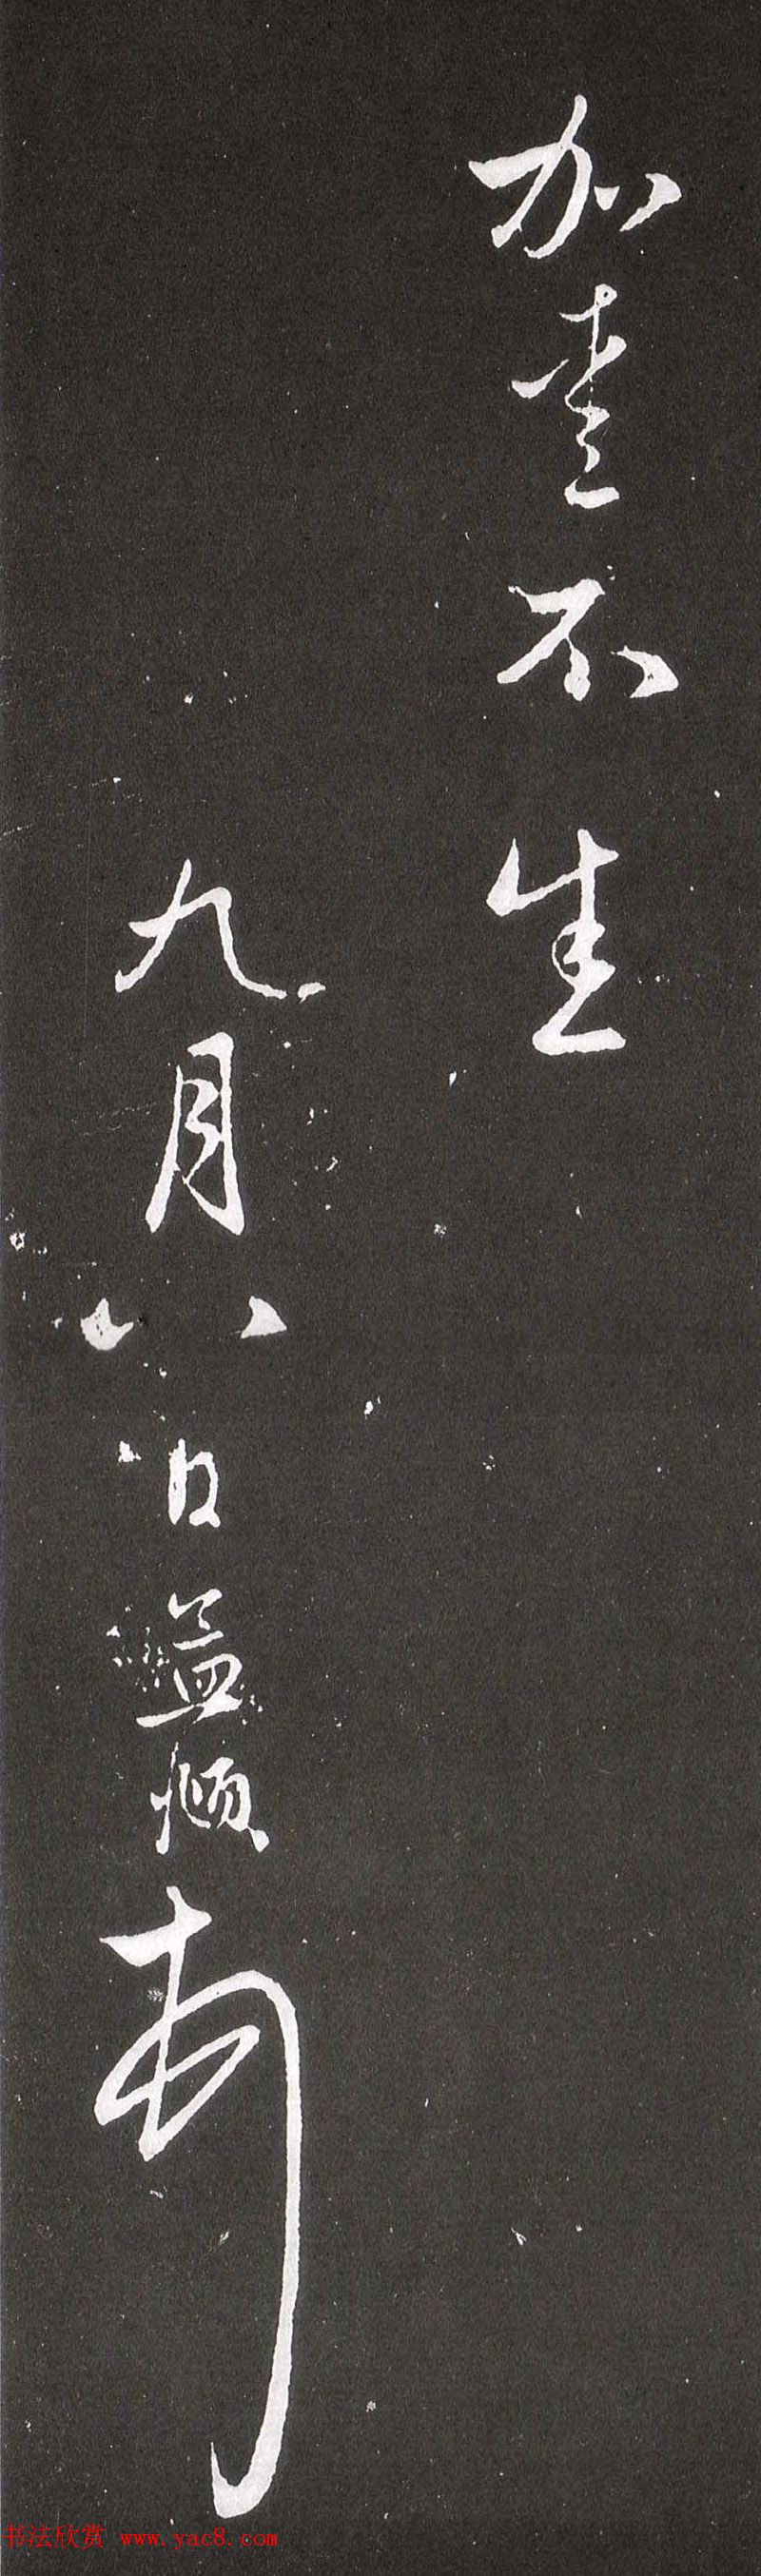 加不生
九月八日孟頫
书法欣赏 www.yac8.com